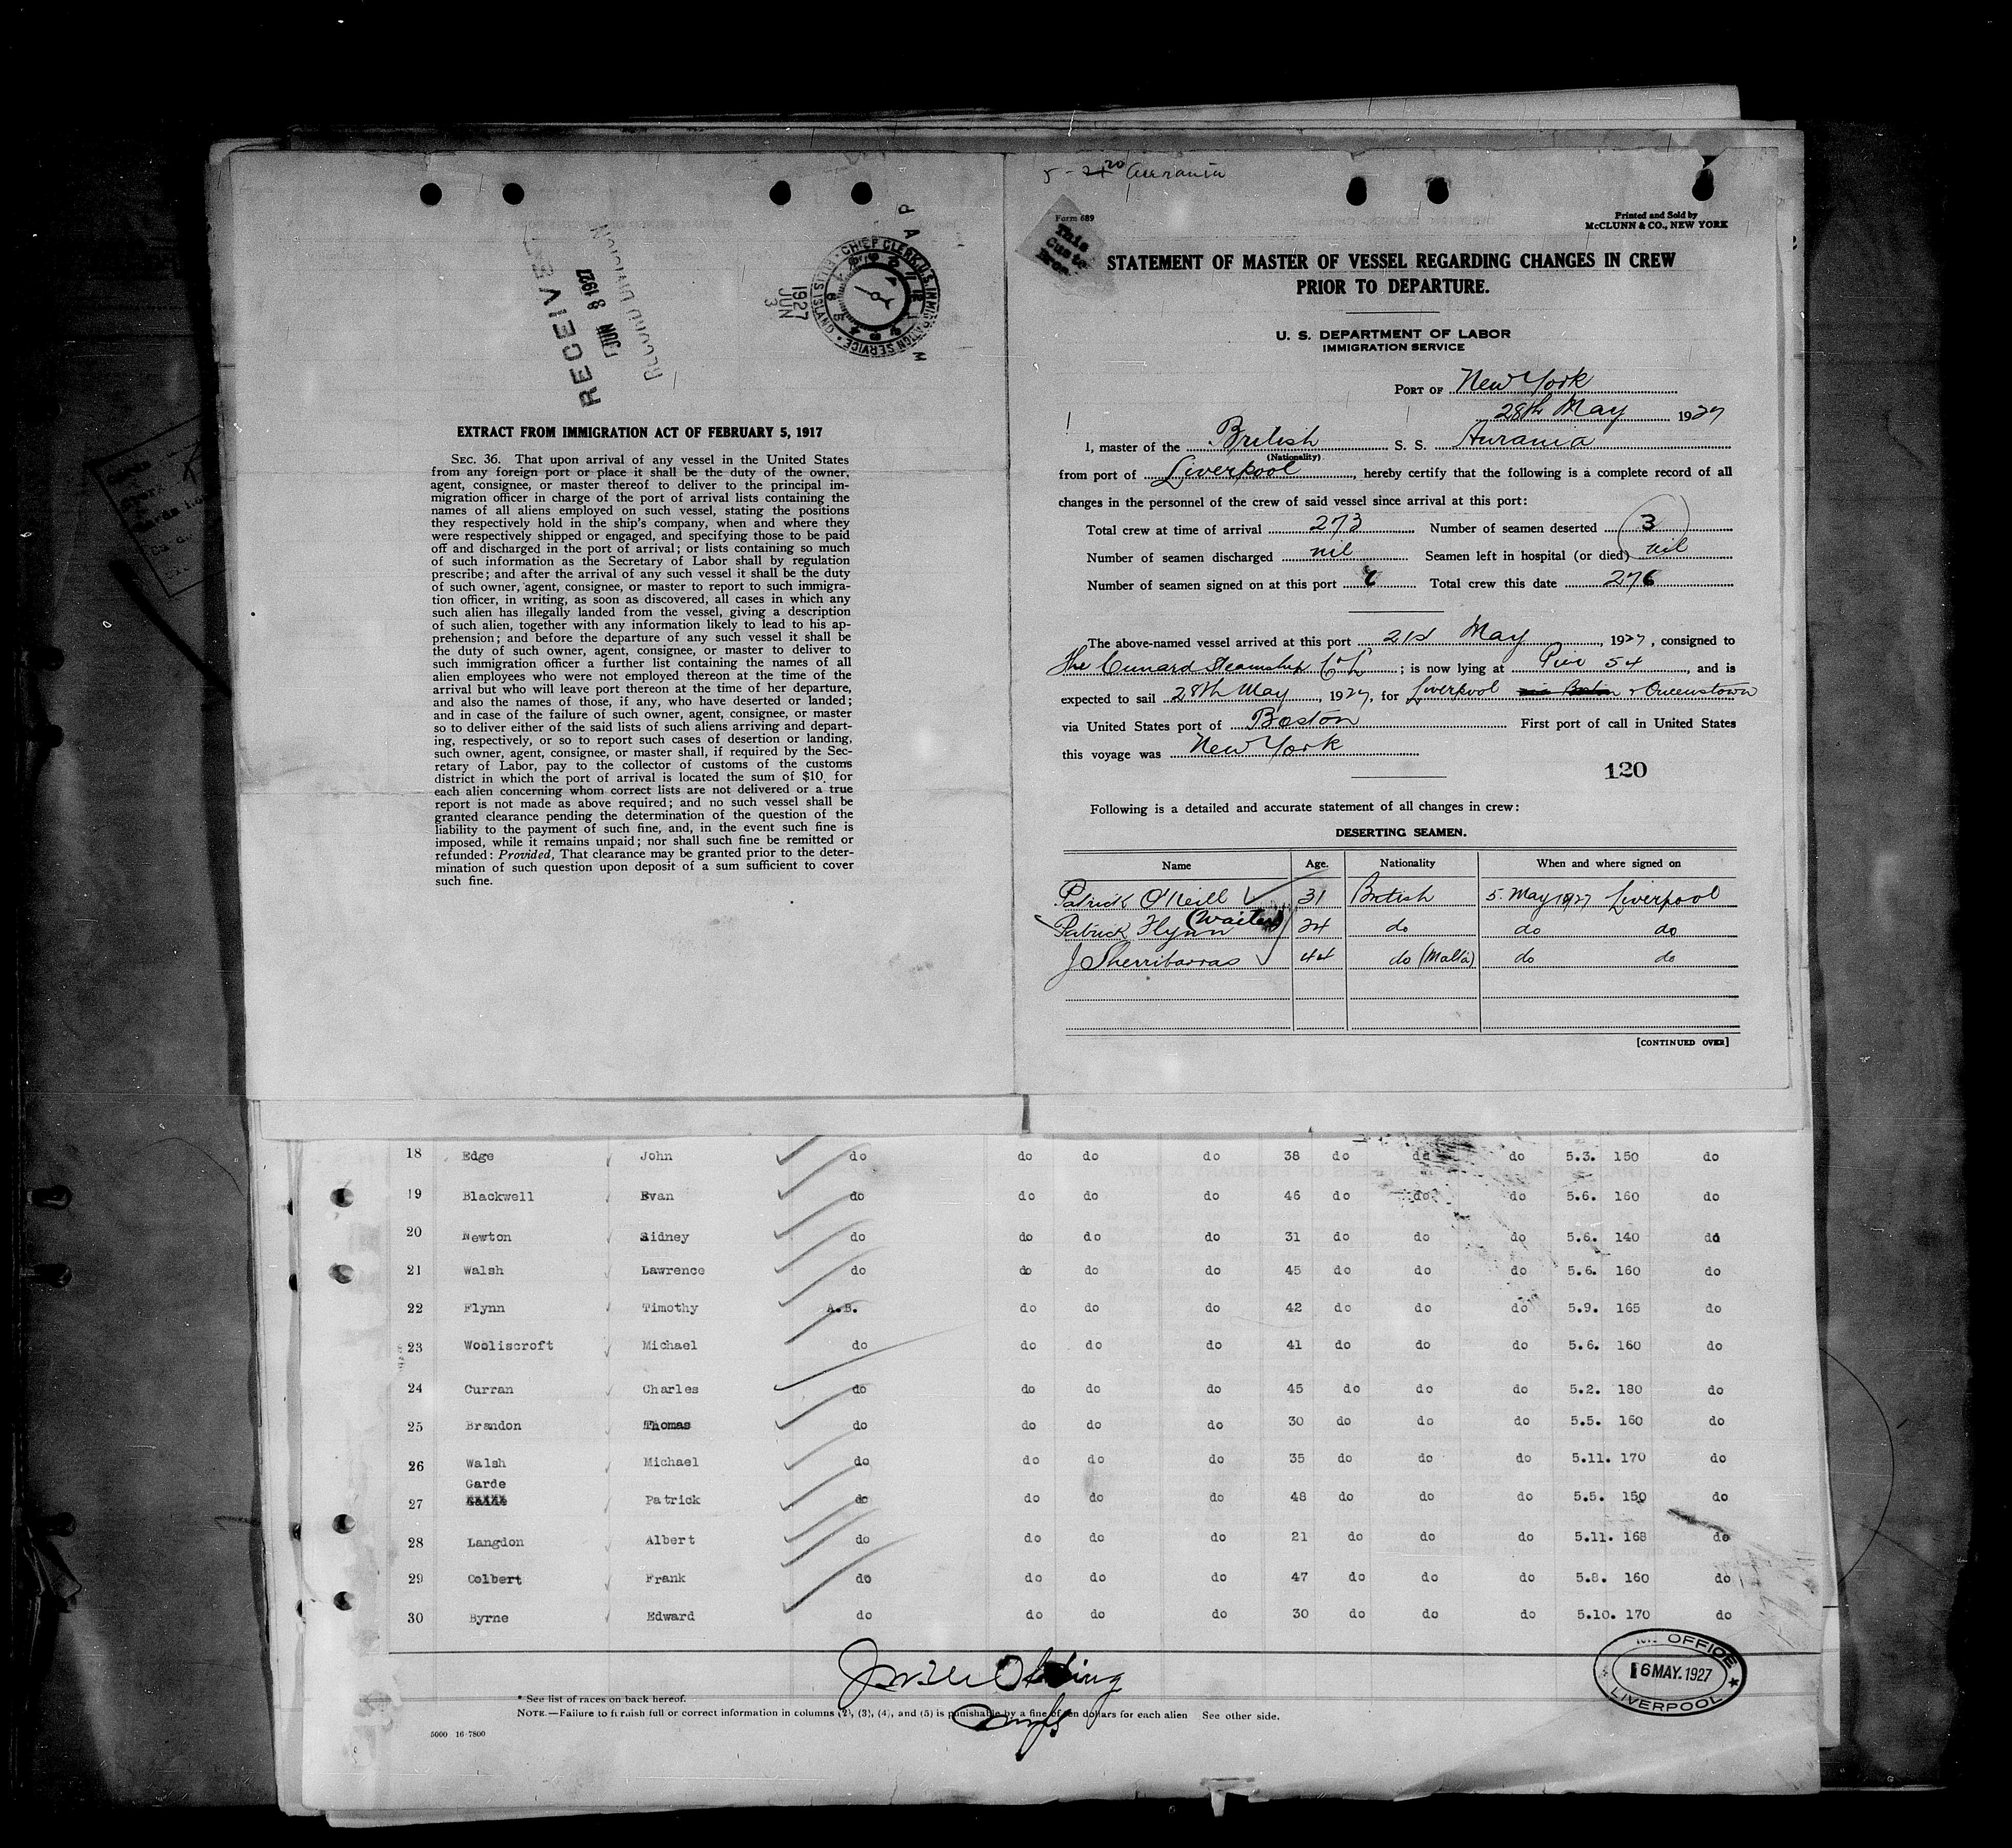 RECEIVED
JUN 8 1927
RECORD DIVISION
CHIEF CLERK U.S. IMMIGRATION SERVICE ELLIS ISLAND
1927
JUN
3
EXTRACT FROM IMMIGRATION ACT OF FEBRUARY 5, 1917
SEC. 36. That upon arrival of any vessel in the United States
from any foreign port or place it shall be the duty of the owner,
agent, consignee, or master thereof to deliver to the principal im-
migration officer in charge of the port of arrival lists containing the
names of all aliens employed on such vessel, stating the positions
they respectively hold in the ship's company, when and where they
were respectively shipped or engaged, and specifying those to be paid
off and discharged in the port of arrival; or lists containing so much
of such information as the Secretary of Labor shall by regulation
prescribe; and after the arrival of any such vessel it shall be the duty
of such owner, agent, consignee, or master to report to such immigra-
tion officer, in writing, as soon as discovered, all cases in which any
such alien has illegally landed from the vessel, giving a description
of such alien, together with any information likely to lead to his ap-
prehension; and before the departure of any such vessel it shall be
the duty of such owner, agent, consignee, or master to deliver to
such immigration officer a further list containing the names of all
alien employees who were not employed thereon at the time of the
arrival but who will leave port thereon at the time of her departure,
and also the names of those, if any, who have deserted or landed;
and in case of the failure of such owner, agent, consignee, or master
so to deliver either of the said lists of such aliens arriving and depart-
ing, respectively, or so to report such cases of desertion or landing,
such owner, agent, consignee, or master shall, if required by the Sec-
retary of Labor, pay to the collector of customs of the customs
district in which the port of arrival is located the sum of $10 for
each alien concerning whom correct lists are not delivered or a true
report is not made as above required; and no such vessel shall be
granted clearance pending the determination of the question of the
liability to the payment of such fine, and, in the event such fine is
imposed, while it remains unpaid; nor shall such fine be remitted or
refunded: Provided, That clearance may be granted prior to the deter-
mination of such question upon deposit of a sum sufficient to cover
such fine.
5-20 Aurania
Form 689
Printed and Sold by
McCLUNN & CO., NEW YORK
STATEMENT OF MASTER OF VESSEL REGARDING CHANGES IN CREW
PRIOR TO DEPARTURE.
U. S. DEPARTMENT OF LABOR
IMMIGRATION SERVICE
PORT OF New York
28th May 1927
I, master of the British S. S. Aurania
(Nationality)
from port of Liverpool, hereby certify that the following is a complete record of all
changes in the personnel of the crew of said vessel since arrival at this port:
Total crew at time of arrival 273 Number of seamen deserted 3
Number of seamen discharged nil Seamen left in hospital (or died) nil
Number of seamen signed on at this port 6 Total crew this date 276
The above-named vessel arrived at this port 21st May, 1927, consigned to
The Cunard Steamship Co Ld; is now lying at Pier 54, and is
expected to sail 28th May, 1927, for Liverpool via Boston & Queenstown
via United States port of Boston First port of call in United States
this voyage was New York
120
Following is a detailed and accurate statement of all changes in crew:
DESERTING SEAMEN.
Name Age. Nationality When and where signed on
Patrick O'Neill 31 British 5. May 1927 Liverpool
Patrick Flynn (Waiter) 24 do do do
J Sherribarras 44 do (Malta) do do
[CONTINUED OVER]
18 Edge John do do do do 38 do do do 5.3. 150 do
19 Blackwell Evan do do do do 46 do do do 5.6. 160 do
20 Newton Sidney do do do do 31 do do do 5.6. 140 do
21 Walsh Lawrence do do do do 45 do do do 5.6. 160 do
22 Flynn Timothy A.B. do do do 42 do do do 5.9. 165 do
23 Wooliscroft Michael do do do do 41 do do do 5.6. 160 do
24 Curran Charles do do do do 45 do do do 5.2. 180 do
25 Brandon Thomas do do do do 30 do do do 5.5. 160 do
26 Walsh Michael do do do do 35 do do do 5.11. 170 do
27 Garde Patrick do do do do 48 do do do 5.5. 150 do
28 Langdon Albert do do do do 21 do do do 5.11. 168 do
29 Colbert Frank do do do do 47 do do do 5.8. 160 do
30 Byrne Edward do do do do 30 do do do 5.10. 170 do
* See list of races on back hereof.
NOTE.—Failure to furnish full or correct information in columns (2), (3), (4), and (5) is punishable by a fine of ten dollars for each alien See other side.
5000 16-7800
OFFICE
6 MAY. 1927
LIVERPOOL